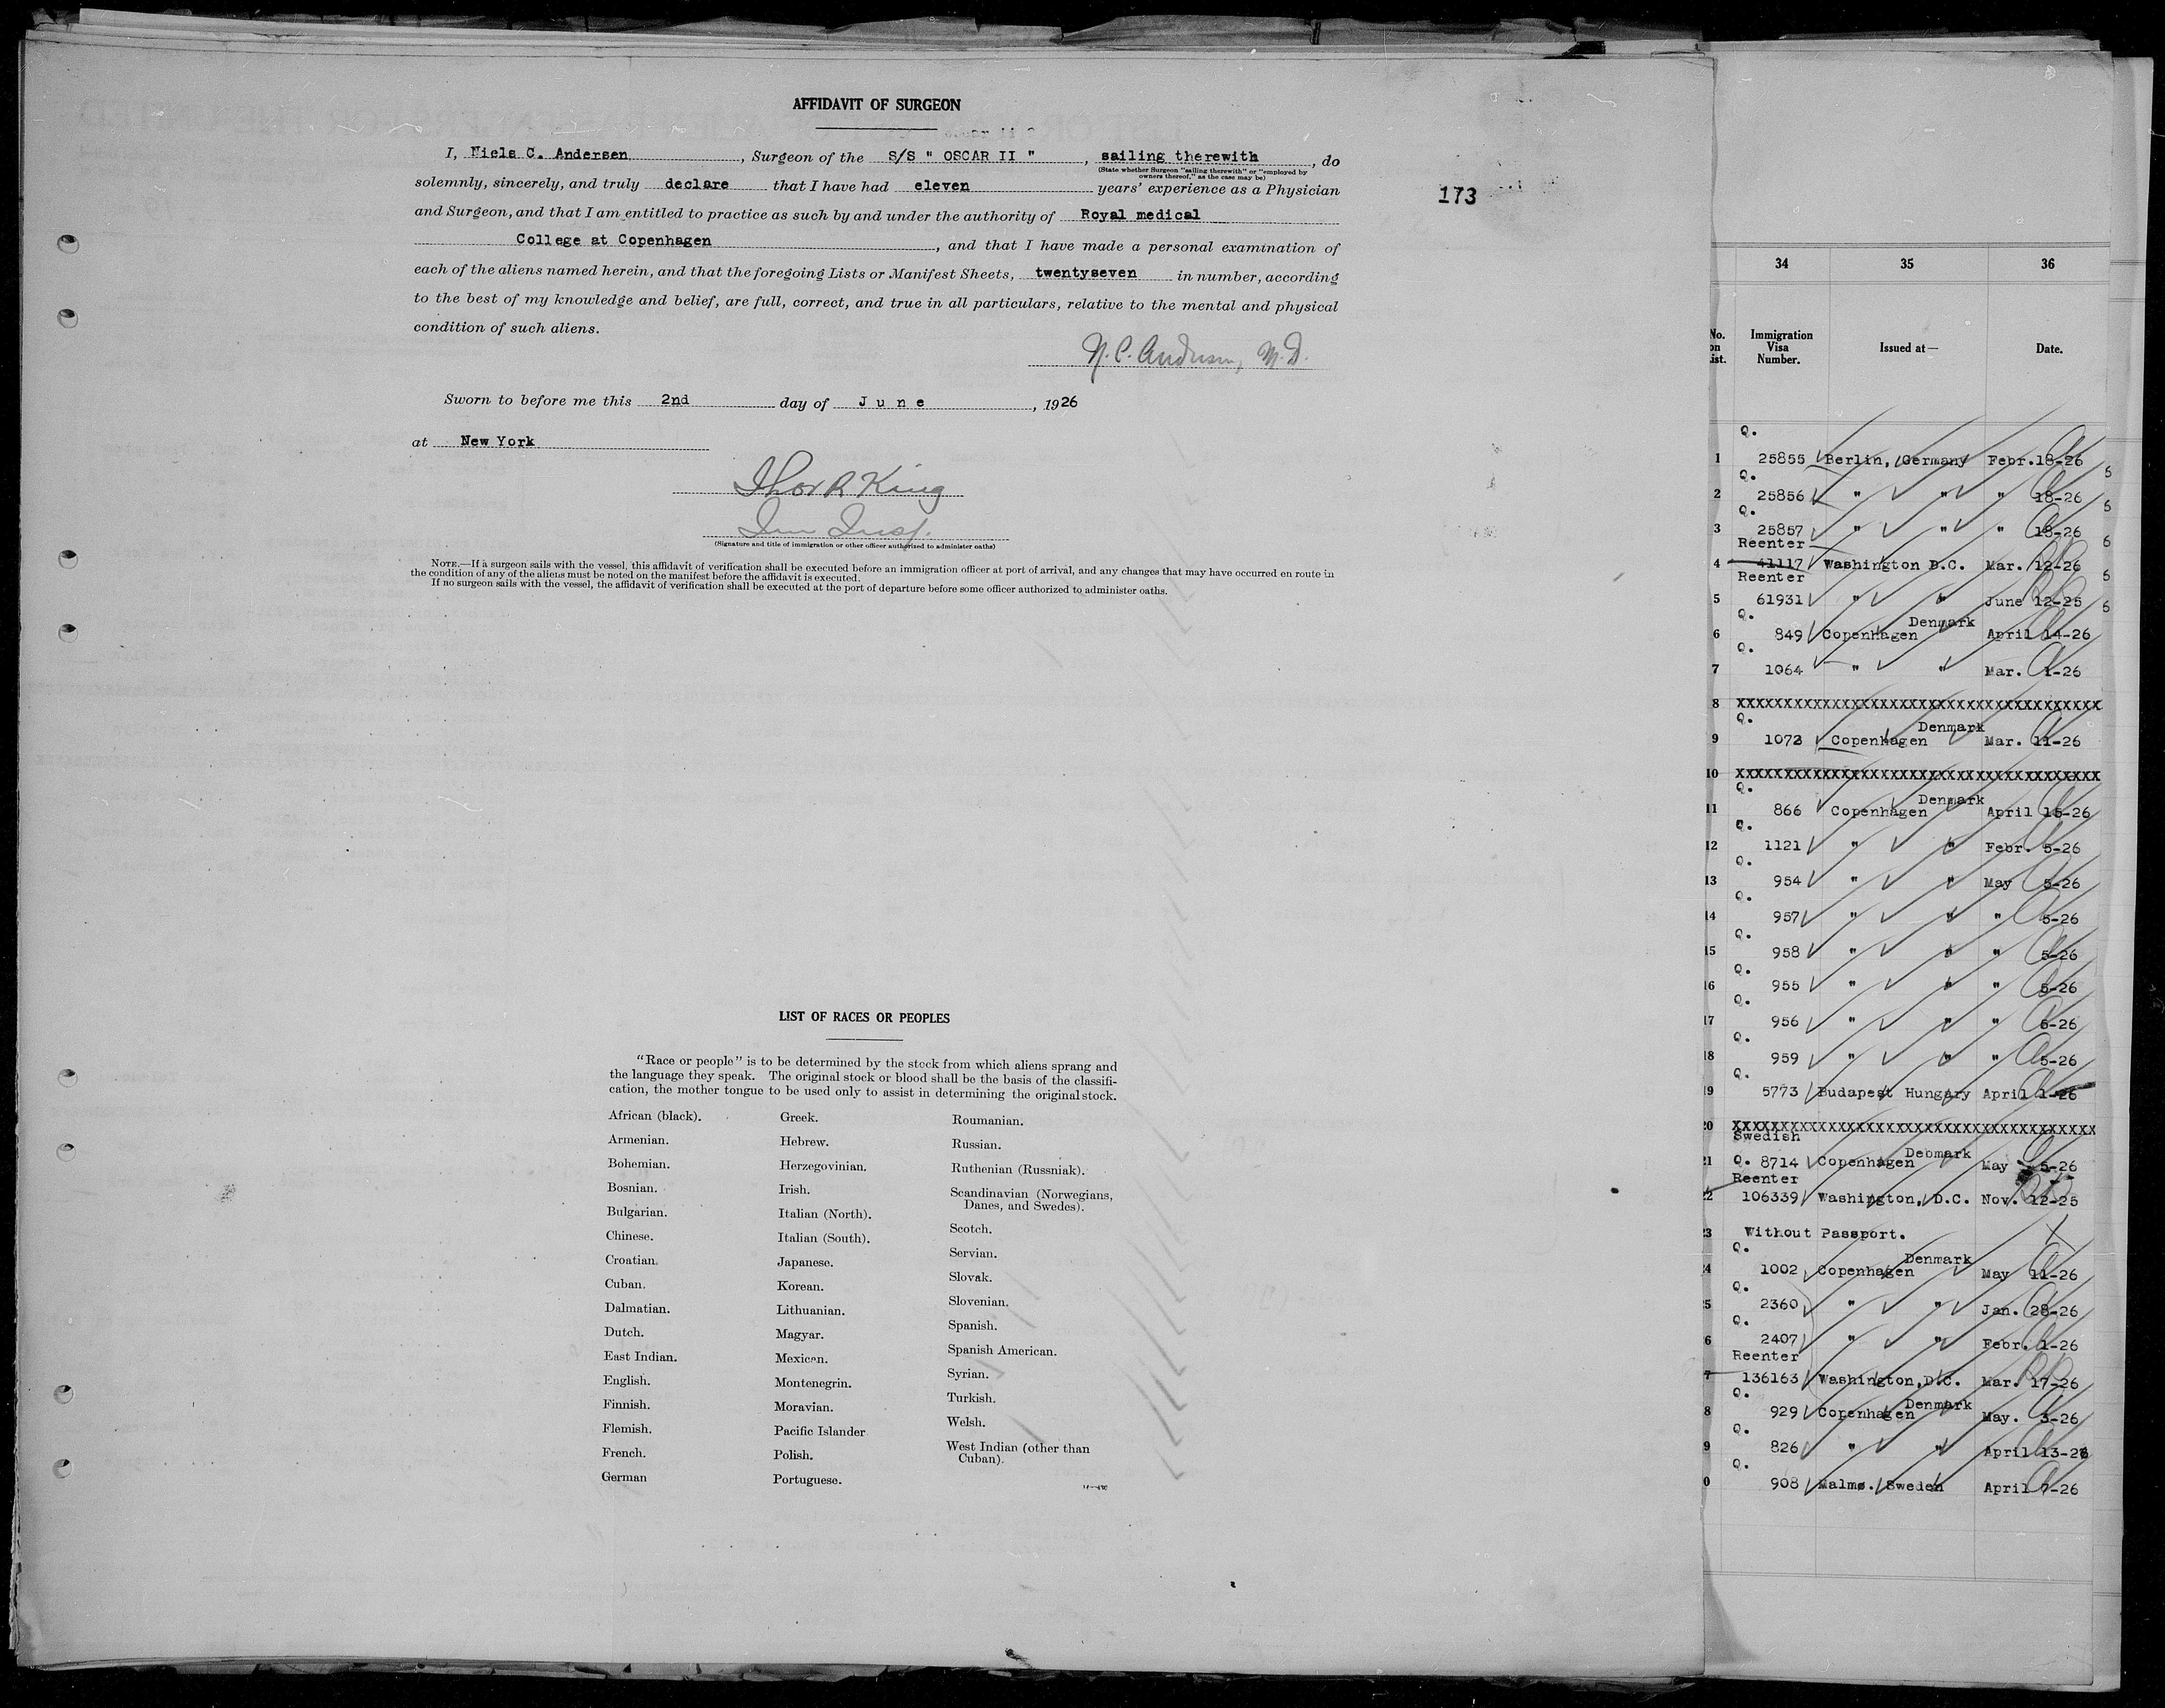 AFFIDAVIT OF SURGEON
I, Niels C. Andersen, Surgeon of the S/S " OSCAR II ", sailing therewith, do
(State whether Surgeon "sailing therewith" or "employed by
owners thereof," as the case may be)
solemnly, sincerely, and truly declare that I have had eleven years' experience as a Physician
and Surgeon, and that I am entitled to practice as such by and under the authority of Royal medical
College at Copenhagen, and that I have made a personal examination of
each of the aliens named herein, and that the foregoing Lists or Manifest Sheets, twentyseven in number, according
to the best of my knowledge and belief, are full, correct, and true in all particulars, relative to the mental and physical
condition of such aliens.
N. C. Andersen, M.D.
Sworn to before me this 2nd day of J u n e, 1926
at New York
Thor R King
Im Insp.
(Signature and title of immigration or other officer authorized to administer oaths)
NOTE.—If a surgeon sails with the vessel, this affidavit of verification shall be executed before an immigration officer at port of arrival, and any changes that may have occurred en route in
the condition of any of the aliens must be noted on the manifest before the affidavit is executed.
If no surgeon sails with the vessel, the affidavit of verification shall be executed at the port of departure before some officer authorized to administer oaths.
173
LIST OF RACES OR PEOPLES
"Race or people" is to be determined by the stock from which aliens sprang and
the language they speak. The original stock or blood shall be the basis of the classifi-
cation, the mother tongue to be used only to assist in determining the original stock.
African (black).
Armenian.
Bohemian.
Bosnian.
Bulgarian.
Chinese.
Croatian.
Cuban.
Dalmatian.
Dutch.
East Indian.
English.
Finnish.
Flemish.
French.
German
Greek.
Hebrew.
Herzegovinian.
Irish.
Italian (North).
Italian (South).
Japanese.
Korean.
Lithuanian.
Magyar.
Mexican.
Montenegrin.
Moravian.
Pacific Islander
Polish.
Portuguese.
Roumanian.
Russian.
Ruthenian (Russniak).
Scandinavian (Norwegians,
Danes, and Swedes).
Scotch.
Servian.
Slovak.
Slovenian.
Spanish.
Spanish American.
Syrian.
Turkish.
Welsh.
West Indian (other than
Cuban).
34 35 36
No. on List. Immigration Visa Number. Issued at— Date.
Q.
1 25855 Berlin, Germany Febr.18-26
Q.
2 25856 " " " 18-26
Q.
3 25857 " " " 18-26
Reenter
4 41117 Washington D.C. Mar. 12-26
Reenter
5 61931 " " June 12-25
Q. Denmark
6 849 Copenhagen April 14-26
Q.
7 1064 " " Mar. 1-26
8 XXXXXXXXXXXXXXXXXXXXXXXXXXXXXXXXXXXXXX
Q. Denmark
9 1073 Copenhagen Mar. 11-26
10 XXXXXXXXXXXXXXXXXXXXXXXXXXXXXXXXXXXXXX
Q. Denmark
11 866 Copenhagen April 15-26
Q.
12 1121 " " Febr. 5-26
Q.
13 954 " " May 5-26
Q.
14 957 " " " 5-26
Q.
15 958 " " " 5-26
Q.
16 955 " " " 5-26
Q.
17 956 " " " 5-26
Q.
18 959 " " " 5-26
Q.
19 5773 Budapest Hungary April 1-26
20 XXXXXXXXXXXXXXXXXXXXXXXXXXXXXXXXXXXXXX
Swedish Debmark
21 Q. 8714 Copenhagen May 5-26
Reenter
22 106339 Washington, D.C. Nov. 12-25
23 Without Passport.
Q. Denmark
24 1002 Copenhagen May 11-26
Q.
25 2360 " " Jan. 28-26
Q.
26 2407 " " Febr. 1-26
Reenter
27 136163 Washington,D.C. Mar. 17-26
Q. Denmark
28 929 Copenhagen May. 3-26
Q.
29 826 " " April 13-26
Q.
30 908 Malmø. Sweden April 7-26